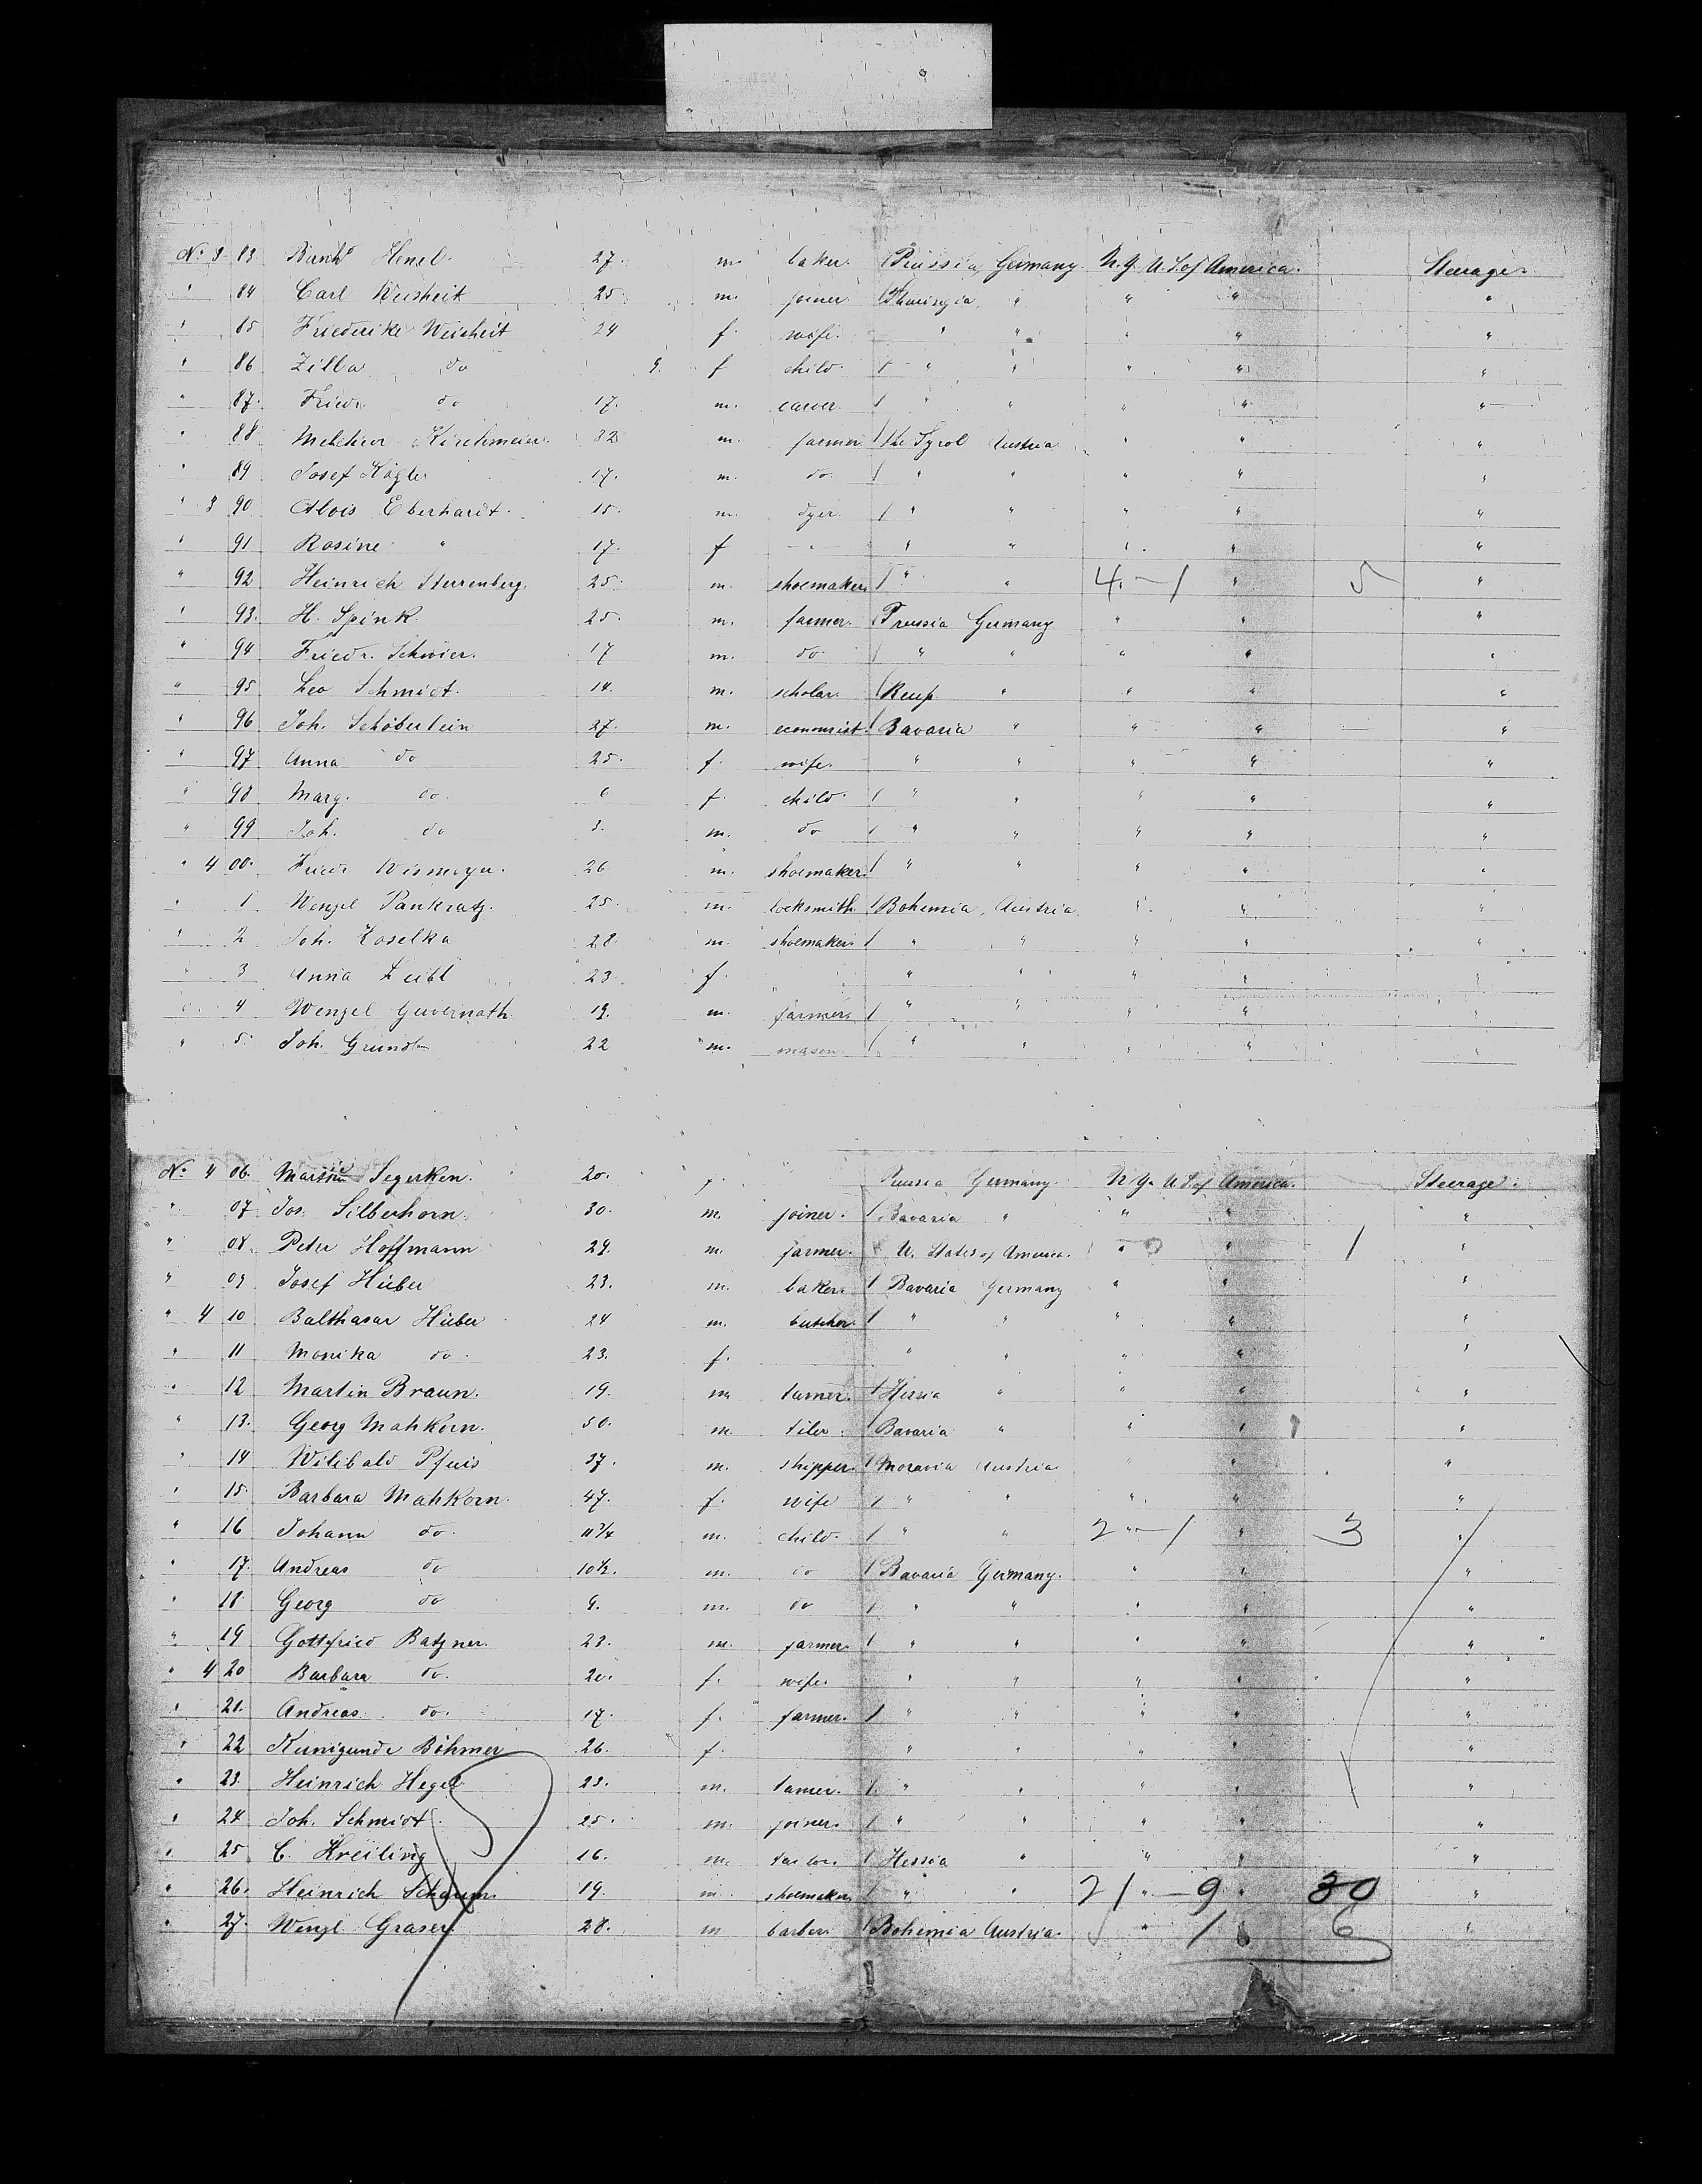 No 3 83 Henel. 27. m. baker. Prussia, Germany. N.Y. U.S. of America. Steerage.
" 84 Carl Weisheit 25. m. joiner. Thuringia, " " " "
" 85 Friederike Weisheit 24 f. wife. " " " " "
" 86 Zilla do 9. f child. 1 " " " " "
" 87. Friedr. do 17. m. carver. 1 " " " " "
" 88 Melchior Kirchmeier. 32 m. farmer 1 the Tyrol Austria " " "
" 89 Josef Kögler 17. m. do 1 " " " " "
" 3 90 Alois Eberhardt. 15. m. dyer. 1 " " " " "
" 91 Rosine " 17. f - " - " " " " "
" 92 Heinrich Sterrenberg. 25. m. shoemaker 1 " " 4 - 1 " 5 "
" 93. H. Spink 25. m. farmer. Prussia Germany " " "
" 94 Friedr. Schwier. 17 m. do 1 " " " " "
" 95 Leo Schmidt. 14. m. scholar. " " " "
" 96 Joh. Schöberlein 27. m. economist. 1 Bavaria " " " "
" 97 Anna do 25. f. wife. " " " " "
" 98 Marg. do 6 f. child. 1 " " " " "
" 99 Joh. do 3. m. do 1 " " " " "
" 4 00. Friedr. Wismeyer. 26 m. shoemaker. 1 " " " " "
" 1 Wenzel Pankratz. 25. m. locksmith. 1 Bohemia, Austria. " " "
" 2 Joh. Koselka 28. m. shoemaker. 1 " " " " "
" 3 Anna Leibl 23. f. " " " " "
" 4 Wenzel Guvernath. 19. m. farmer. 1 " " " " "
" 5. Joh. Gründl 22 m. mason. 1 " " " " "
No 4 06. Segerken. 20. f. Prussia Germany. N.Y. U.S. of America. Steerage.
" 07 Jos. Silberhorn. 30. m. joiner. 1 Bavaria " " " "
" 08. Peter Hoffmann 29. m. farmer. U. States of America. " " 1 "
" 09 Josef Hüber 23. m. baker. 1 Bavaria Germany " " "
" 4 10 Balthasar Hüber 24 m. butcher. 1 " " " " "
" 11 Monika do. 23. f. " " " " "
" 12 Martin Braun. 19. m turner. 1 Hessia " " " "
" 13. Georg Mahkorn. 50. m. tiler. 1 Bavaria " " " "
" 14 Wilibald Pfuis 37. m. shipper. 1 Moravia Austria " " "
" 15. Barbara Mahkorn. 47. f. wife 1 " " " " "
" 16 Johann do. 11 3/4 m. child. 1 " " 2 - 1 " 3 "
" 17. Andreas do 10 1/2. m. do 1 Bavaria Germany. " " "
" 18. Georg do 9. m. do 1 " " " " "
" 19 Gottfried Batzner. 23. m. farmer. 1 " " " " "
" 4 20 Barbara do. 20. f. wife. " " " " "
" 21. Andreas. do. 17. f. farmer. 1 " " " " "
" 22 Kunigunde Böhmer 26. f. " " " " "
" 23. Heinrich Hegel 23. m. tanner. 1 " " " " "
" 24 Joh. Schmidt. 25. m. joiner. 1 " " " " "
" 25 C. Kreiling 16. m. tailor. 1 Hessia " " " "
" 26. Heinrich Schaum. 19. m shoemaker 1 " " 21 - 9 " 30 "
" 27. Wenzl Graser. 28. m barber. 1 Bohemia Austria. " 1 6 "